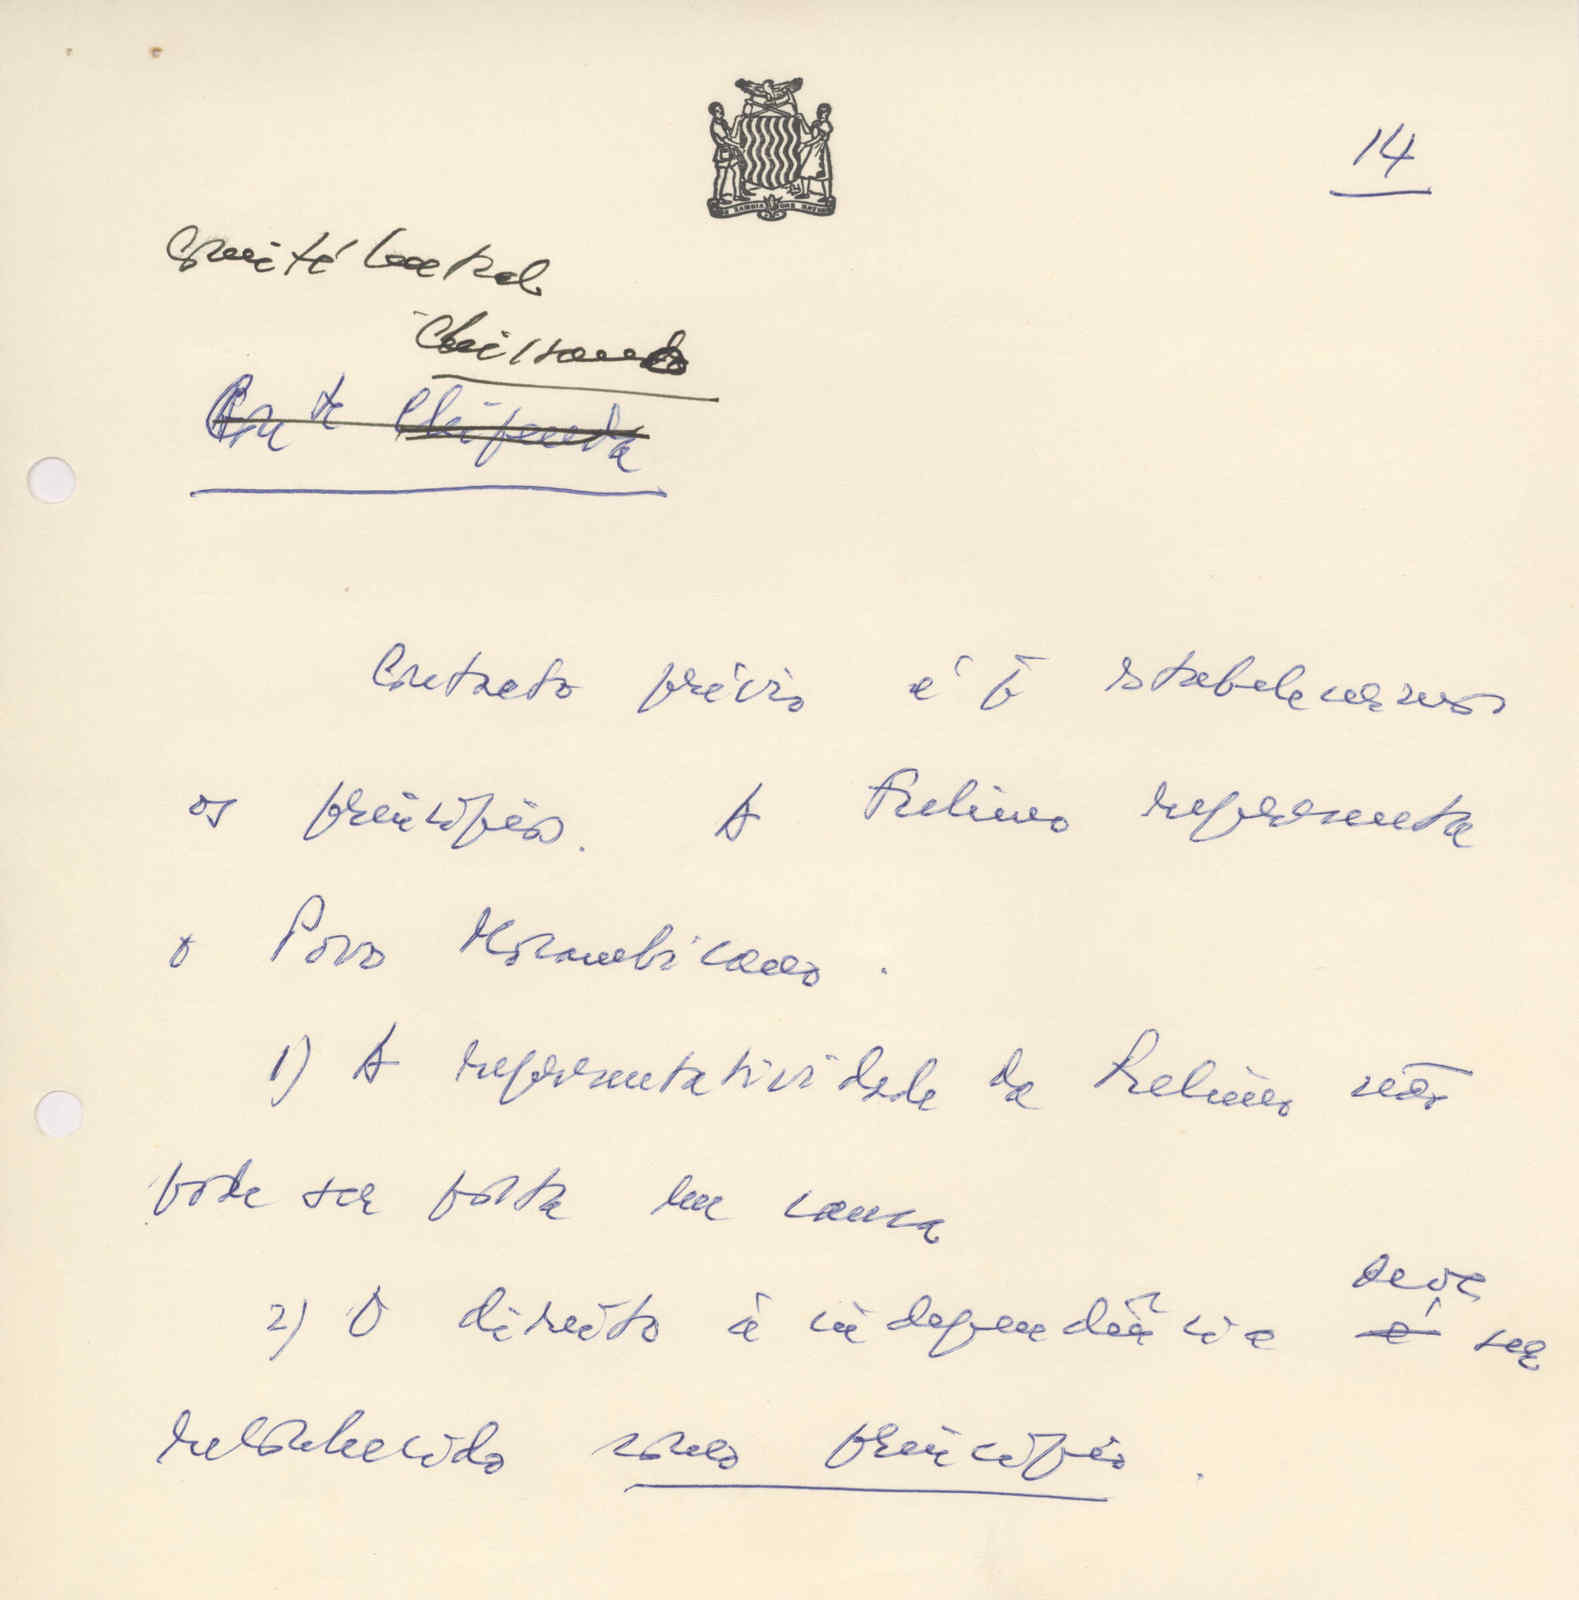 14
Comité Central
Chissano
Com te Chipenda
Contacto prévio é p estabelecermos
os princípios. A Frelimo representa
o Povo Moçambicano.
1) A representatividade da Frelimo não
pode ser posta em causa
2) O direito à independência é deve ser
reconhecido como princípio.